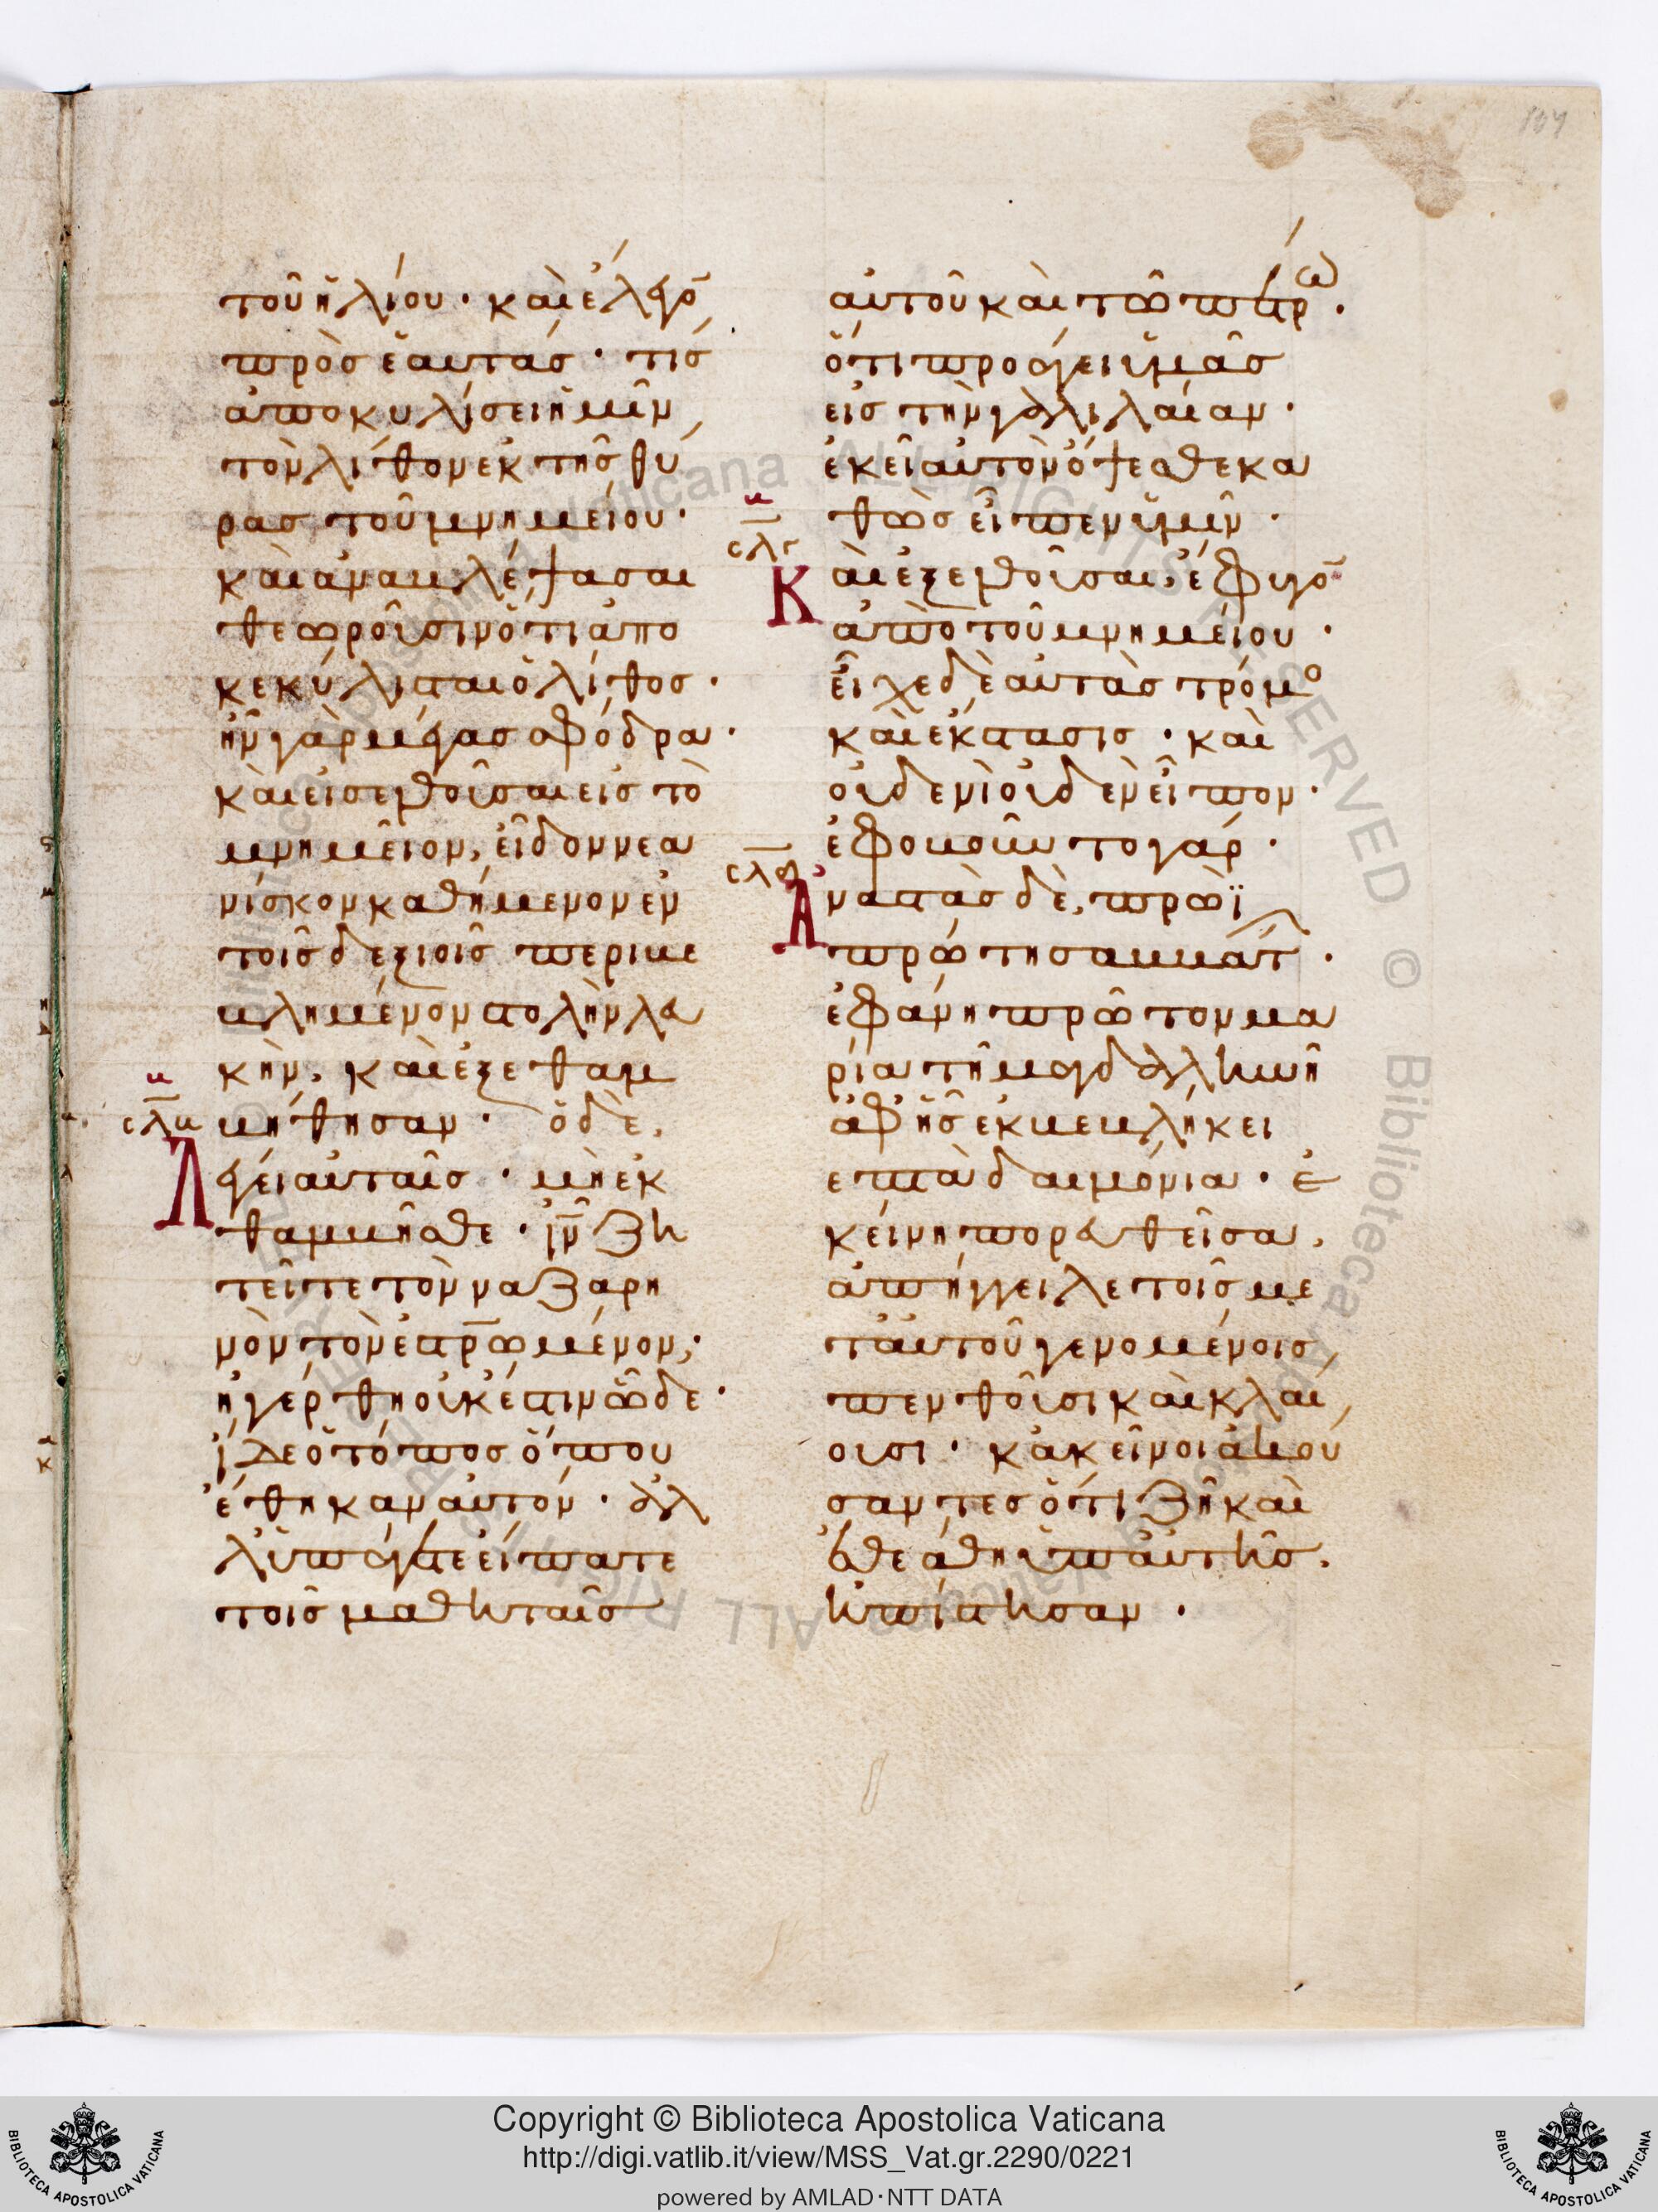 104
τοῦ ἡλίου· καὶ ἔλεγο̅
πρὸς ἑαυτάς· τίς
ἀποκυλίσει ἡμῖν,
τὸν λίθον ἐκ τῆς θύ
ρας τοῦ μνημείου·
καὶ ἀναβλέψασαι
θεωροῦσιν ὅτι ἀπο
κεκύλισται ὁ λίθος·
ἦν γὰρ μέγας σφόδρα·
καὶ εἰσελθοῦσαι εἰς τὸ
μνημεῖον, εἶδον νεα
νίσκον καθήμενον ἐν
τοῖς δεξιοῖς περιβε
βλημένον στολὴν λευ
κὴν, καὶ ἐξεθαμ
βήθησαν· ὁ δὲ,
β
σλβ
Λέγει αὐταῖς· μὴ ἐκ
θαμβῆσθε· ἰ̅ν̅ ζη
τεῖτε τὸν ναζαρη
νὸν τὸν ἐσταυρωμένον,·
ἠγέρθη οὐκ ἔστιν ὧδε·
ἴδε ὁ τόπος ὅπου
ἔθηκαν αὐτόν· ἀλ
λ' ὑπάγετε εἴπατε
τοῖς μαθηταῖς
αὐτοῦ καὶ τῶ πέτρω·
ὅτι προάγει ὑμᾶς
εἰς τὴν γαλιλαίαν·
ἐκεῖ αὐτὸν ὄψεσθε κα
θὼς εἶπεν ὑμῖν·
β
σλγ
Καὶ ἐξελθοῦσαι, ἔφυγο̅
ἀπὸ τοῦ μνημείου·
εἶχε δὲ αὐτὰς τρόμο
καὶ ἔκστασις· καὶ
οὐδενὶ οὐδὲν εἶπον·
ἐφοβοῦντο γάρ·
σλδ
Ἀναστὰς δὲ, πρωῒ
πρώτη σαββάτ·
ἐφάνη πρῶτον μα
ρία τῆ μαγδαληνῆ
ἀφ' ἧς ἐκβεβλήκει
επτὰ δαιμόνια· ἐ
κείνη πορευθεῖσα,
ἀπήγγειλε τοῖς με
τ' αὐτοῦ γενομένοις,
πενθοῦσι καὶ κλαί
ουσι· κἀκεῖνοι ἀκού
σαντες ὅτι ζῆ καὶ
ἐθεάθη ὑπ' αὐτῆς,
ἠπίστησαν·
Copyright © Biblioteca Apostolica Vaticana
http://digi.vatlib.it/view/MSS_Vat.gr.2290/0221
powered by AMLAD·NTT DATA
BIBLIOTECA APOSTOLICA VATICANA
BIBLIOTECA APOSTOLICA VATICANA